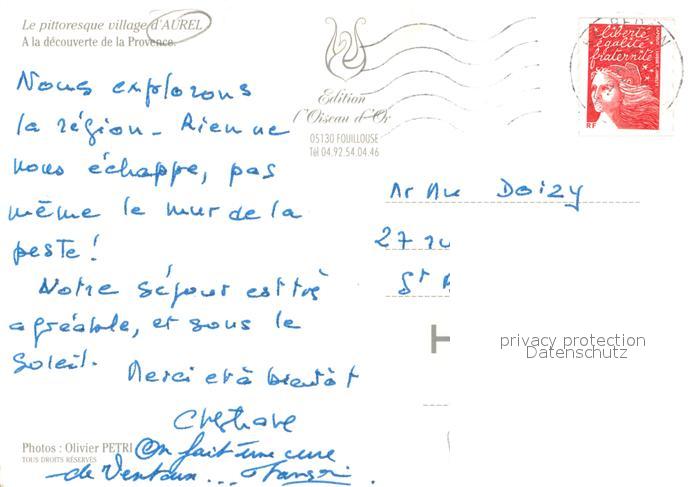 Le pittoresque village d'AUREL
A la découverte de la Provence.
Nous explorons
la région - Rien ne
nous échappe, pas
même le mur de la
peste !
Notre séjour est très
agréable, et sous le
soleil.
Merci et à bientôt
On fait une cure
de Ventoux...
Photos : Olivier PETRI
TOUS DROITS RÉSERVÉS
Edition
L'Oiseau d'Or
05130 FOUILLOUSE
Tél 04.92.54.04.46
liberté
égalité
fraternité
RF
Mr Mme Doizy
27 ru
St
privacy protection
Datenschutz